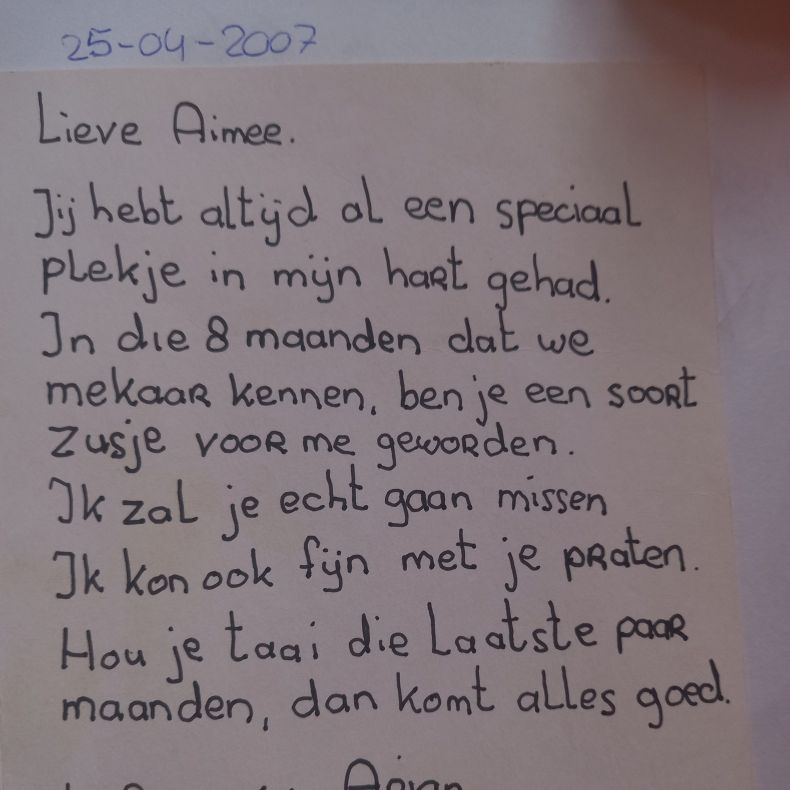 25-04-2007
Lieve Aimee.
Jij hebt altijd al een speciaal
plekje in mijn hart gehad.
In die 8 maanden dat we
mekaar kennen, ben je een soort
zusje voor me geworden.
Ik zal je echt gaan missen
Ik kon ook fijn met je praten.
Hou je taai die laatste paar
maanden, dan komt alles goed.